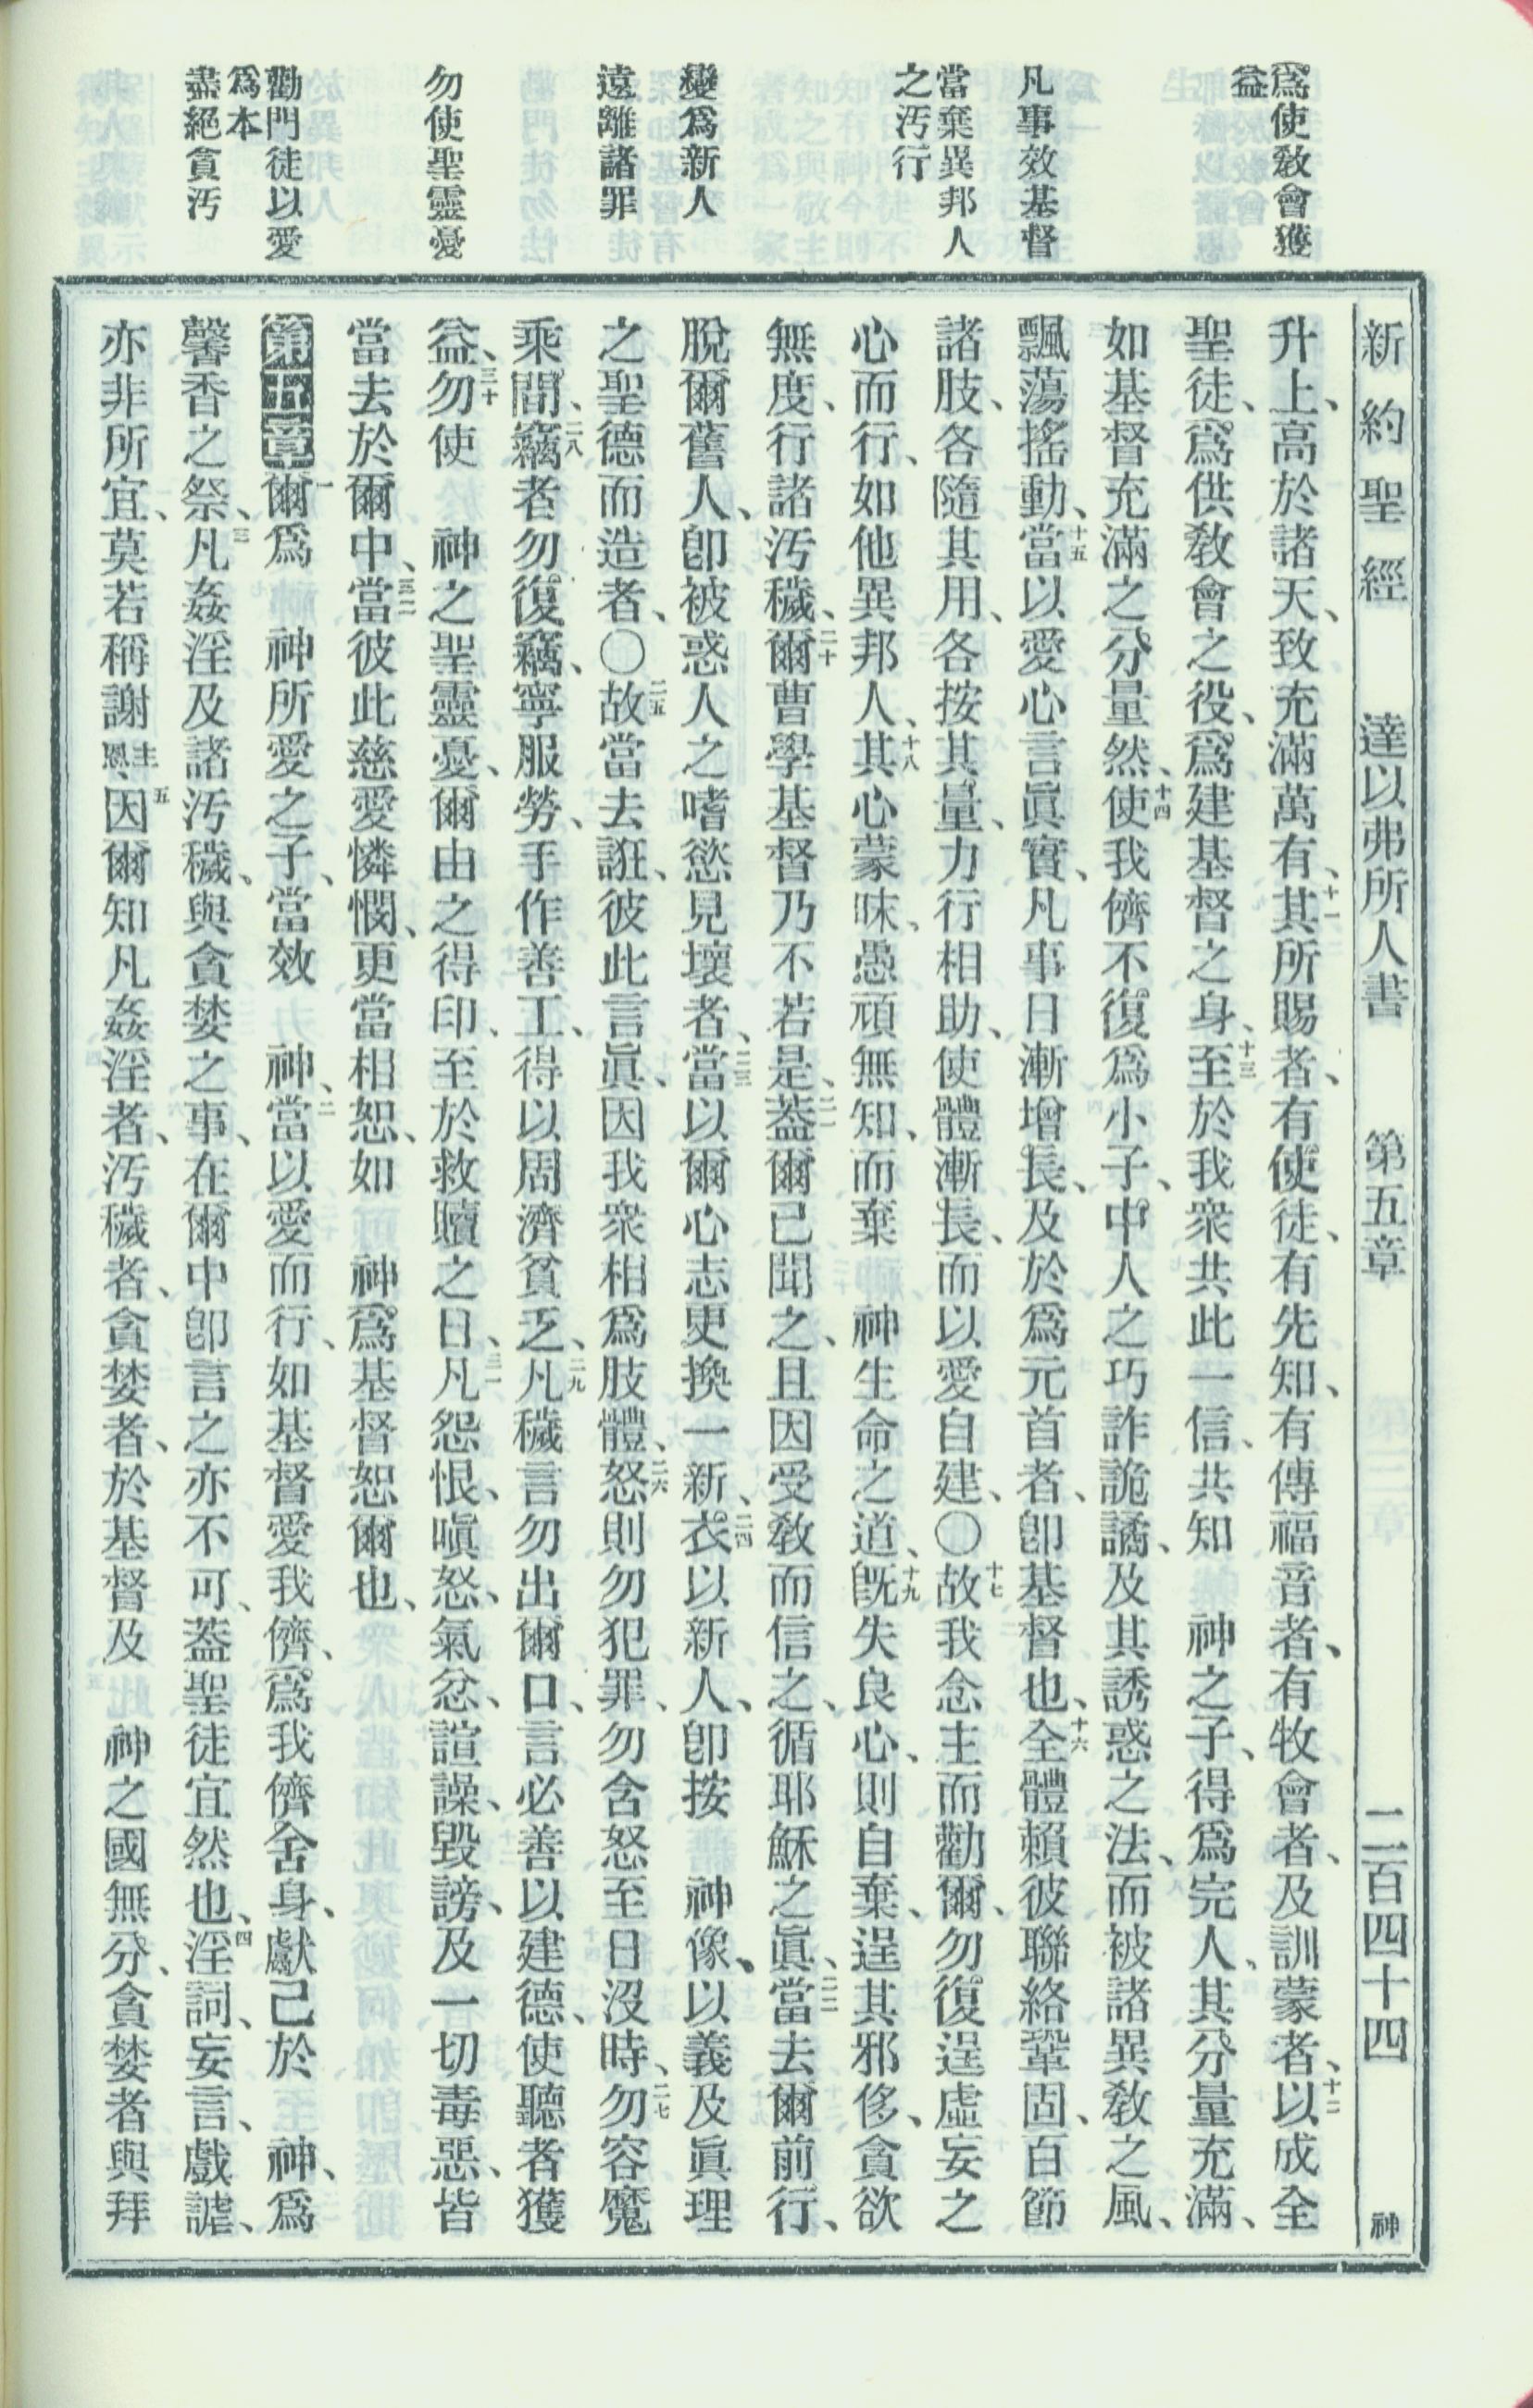 新約聖經 達以弗所人書 第五章 二百四十四 神
爲使敎會獲
益
凡事效基督
當棄異邦人
之汚行
變爲新人
遠離諸罪
勿使聖靈憂
勸門徒以愛
爲本
盡絕貪汚
升上、高於諸天、致充滿萬有、十一其所賜者、有使徒、有先知、有傳福音者、有牧會者、及訓蒙者、十二以成全
聖徒、爲供敎會之役、爲建基督之身、十三至於我衆共此一信、共知 神之子、得爲完人、其分量充滿、
如基督充滿之分量然、十四使我儕不復爲小子、中人之巧詐詭譎、及其誘惑之法、而被諸異敎之風、
飄蕩搖動、十五當以愛心言眞實、凡事日漸增長、及於爲元首者、卽基督也、十六全體賴彼聯絡鞏固、百節
諸肢、各隨其用、各按其量、力行相助、使體漸長、而以愛自建、〇十七故我念主而勸爾、勿復逞虛妄之
心而行、如他異邦人、十八其心蒙昧、愚頑無知、而棄 神生命之道、十九旣失良心、則自棄、逞其邪侈、貪欲
無度、行諸汚穢、二十爾曹學基督乃不若是、二一蓋爾已聞之、且因受敎而信之、循耶穌之眞、二二當去爾前行、
脫爾舊人、卽被惑人之嗜慾見壞者、二三當以爾心志更換一新、二四衣以新人、卽按 神像、以義及眞理
之聖德而造者、〇二五故當去誑、彼此言眞、因我衆相爲肢體、二六怒則勿犯罪、勿含怒至日沒時、二七勿容魔
乘間、二八竊者勿復竊、寧服勞、手作善工、得以周濟貧乏、二九凡穢言勿出爾口、言必善以建德、使聽者獲
益、三十勿使 神之聖靈憂、爾由之得印、至於救贖之日、三一凡怨恨、嗔怒、氣忿、諠譟、毀謗、及一切毒惡、皆
當去於爾中、三二當彼此慈愛憐憫、更當相恕、如 神爲基督恕爾也、
第五章 一爾爲 神所愛之子、當效 神、二當以愛而行、如基督愛我儕、爲我儕舍身、獻己於 神、爲
馨香之祭、三凡姦淫及諸汚穢、與貪婪之事、在爾中卽言之亦不可、蓋聖徒宜然也、四淫詞、妄言、戲謔、
亦非所宜、莫若稱謝主恩、五因爾知凡姦淫者、汚穢者、貪婪者、於基督及 神之國無分、貪婪者與拜